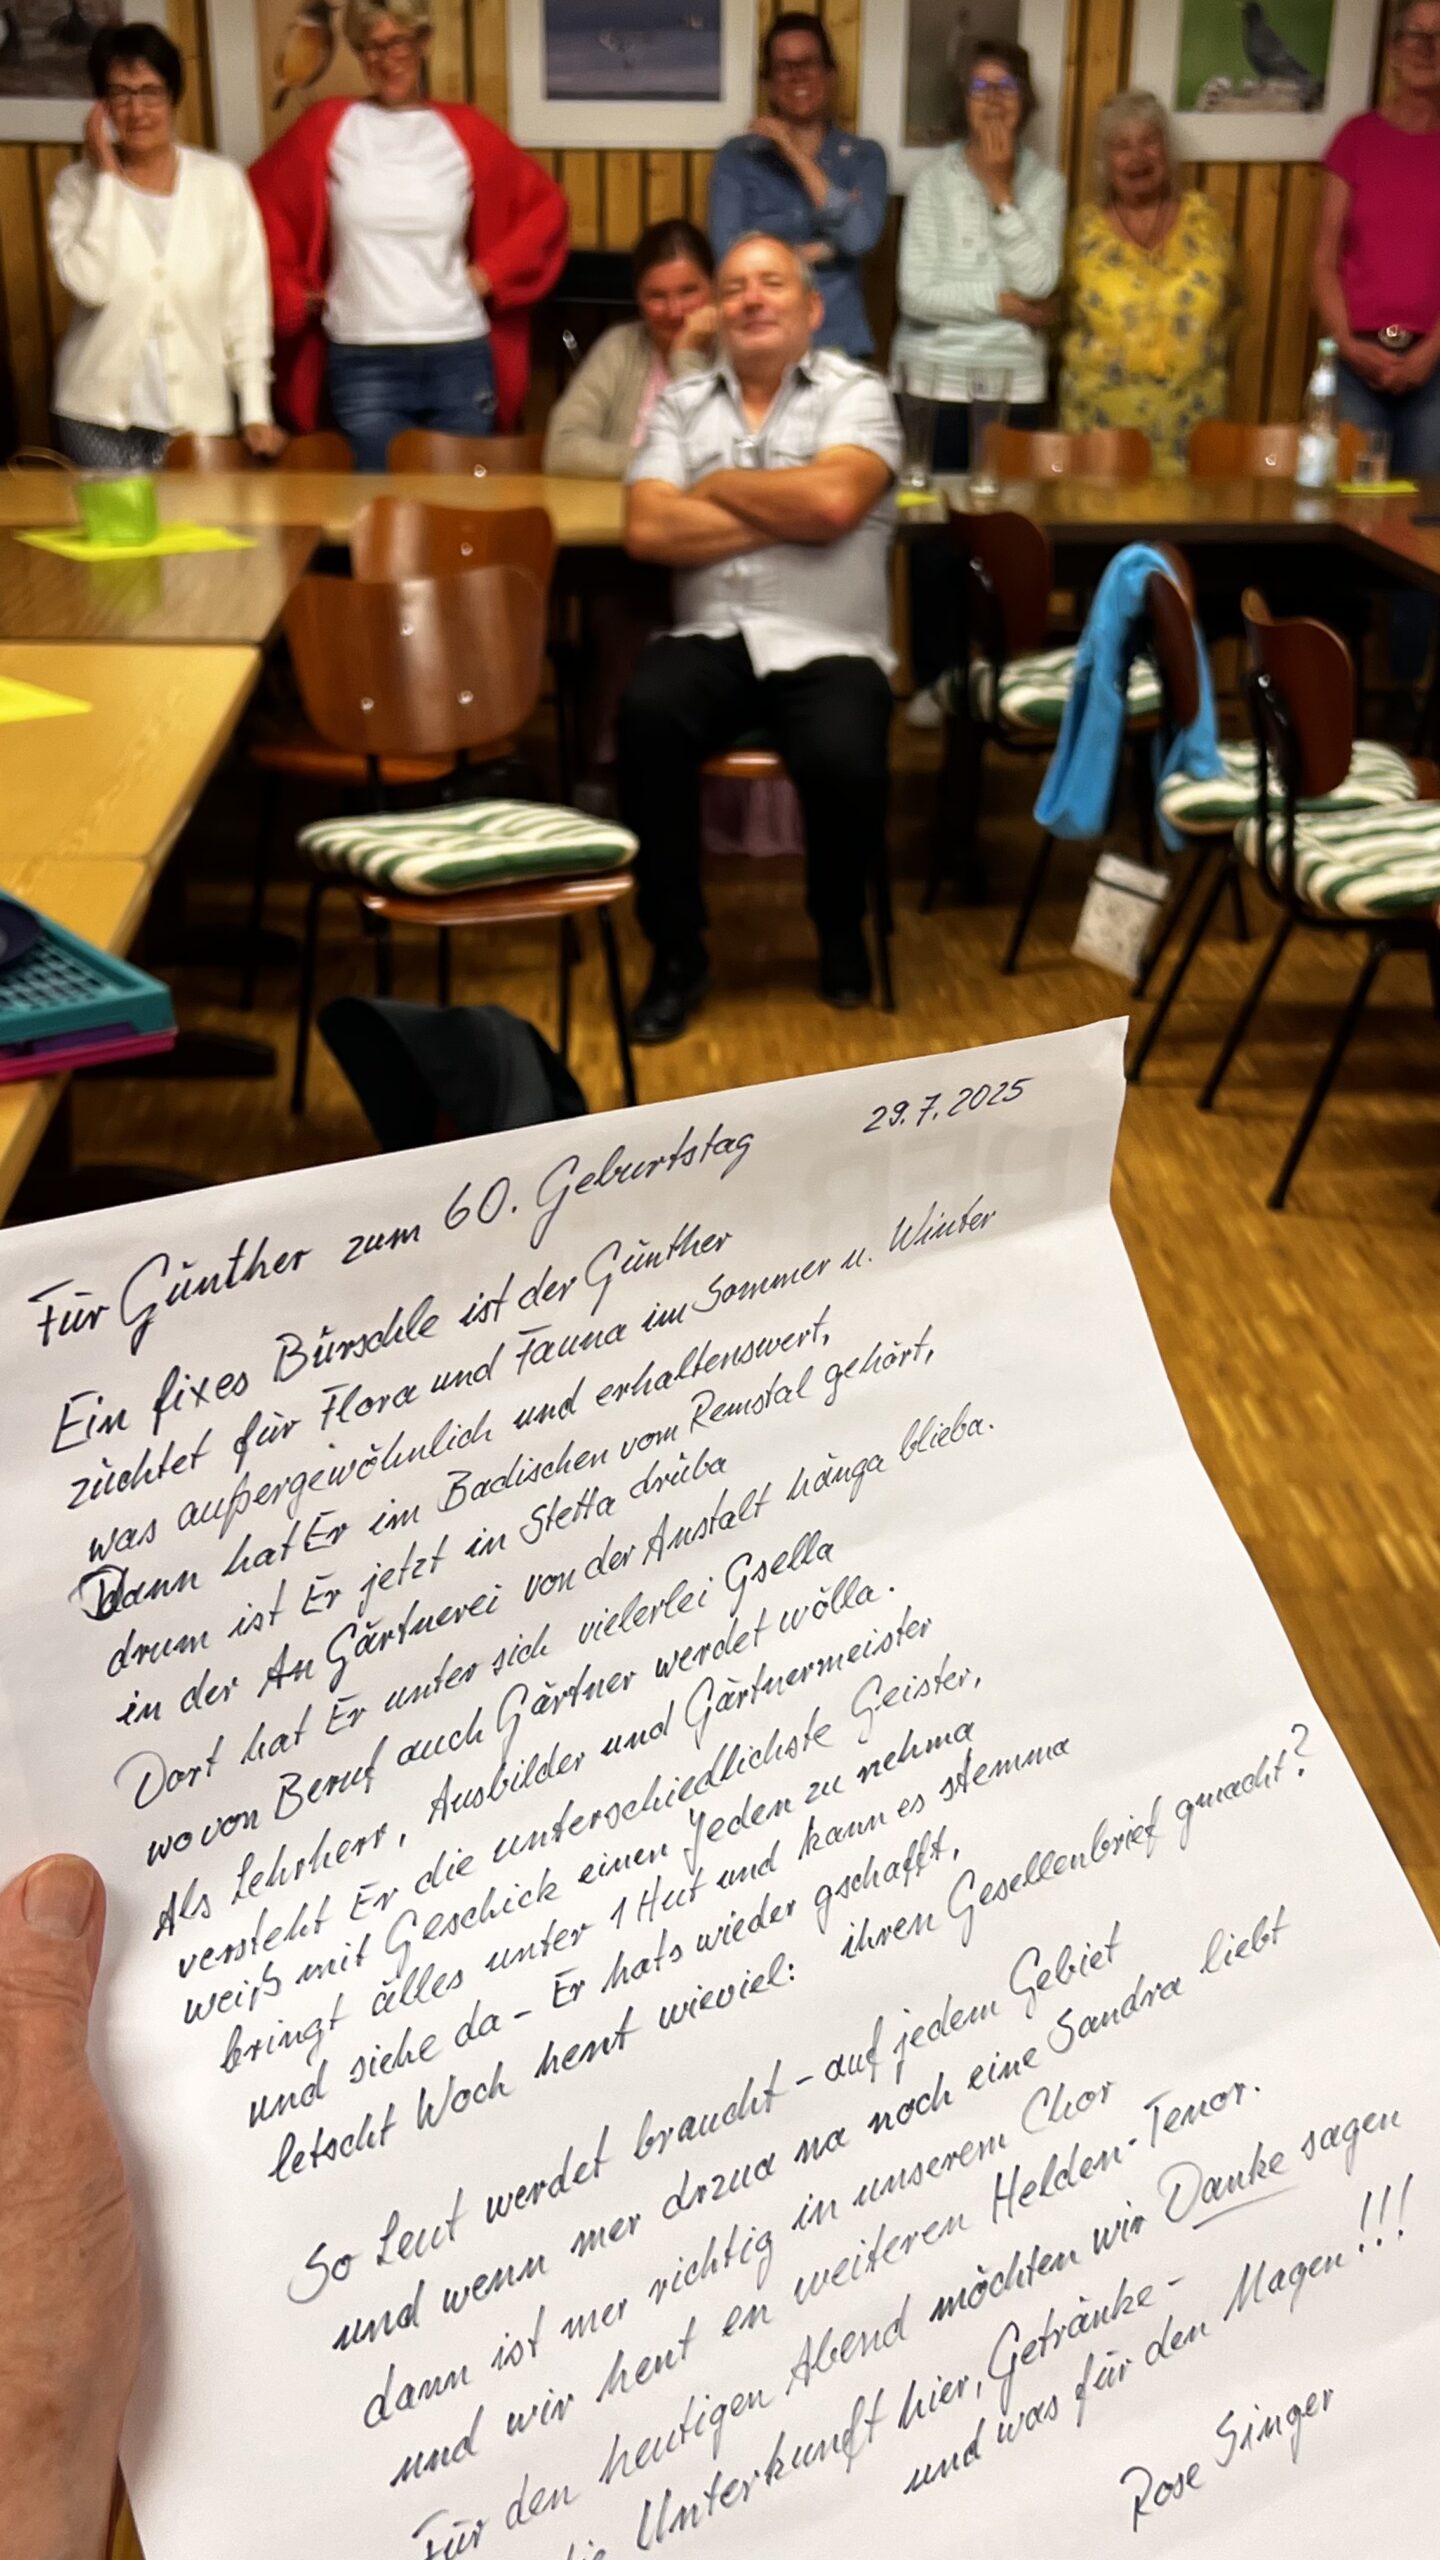 29.7.2025
Für Günther zum 60. Geburtstag
Ein fixes Bürschle ist der Günther
züchtet für Flora und Fauna im Sommer u. Winter
was außergewöhnlich und erhaltenswert,
Dann hat Er im Badischen vom Remstal gehört,
drum ist Er jetzt in Stetta drüba
in der An Gärtnerei von der Anstalt hänga blieba.
Dort hat Er unter sich vielerlei Gsella
wo von Beruf auch Gärtner werdet wölla.
Als Lehrherr, Ausbilder und Gärtnermeister
versteht Er die unterschiedlichste Geister,
weiß mit Geschick einen Jeden zu nehma
bringt älles unter 1 Hut und kann es stemma
und siehe da - Er hats wieder gschafft,
letscht Woch hent wieviel: ihren Gesellenbrief gmacht?
So Leut werdet braucht - auf jedem Gebiet
und wenn mer drzua na noch eine Sandra liebt
dann ist mer richtig in unserem Chor
und wir hent en weiteren Helden-Tenor.
Für den heutigen Abend möchten wir Danke sagen
die Unterkunft hier, Getränke -
und was für den Magen!!!
Rose Singer